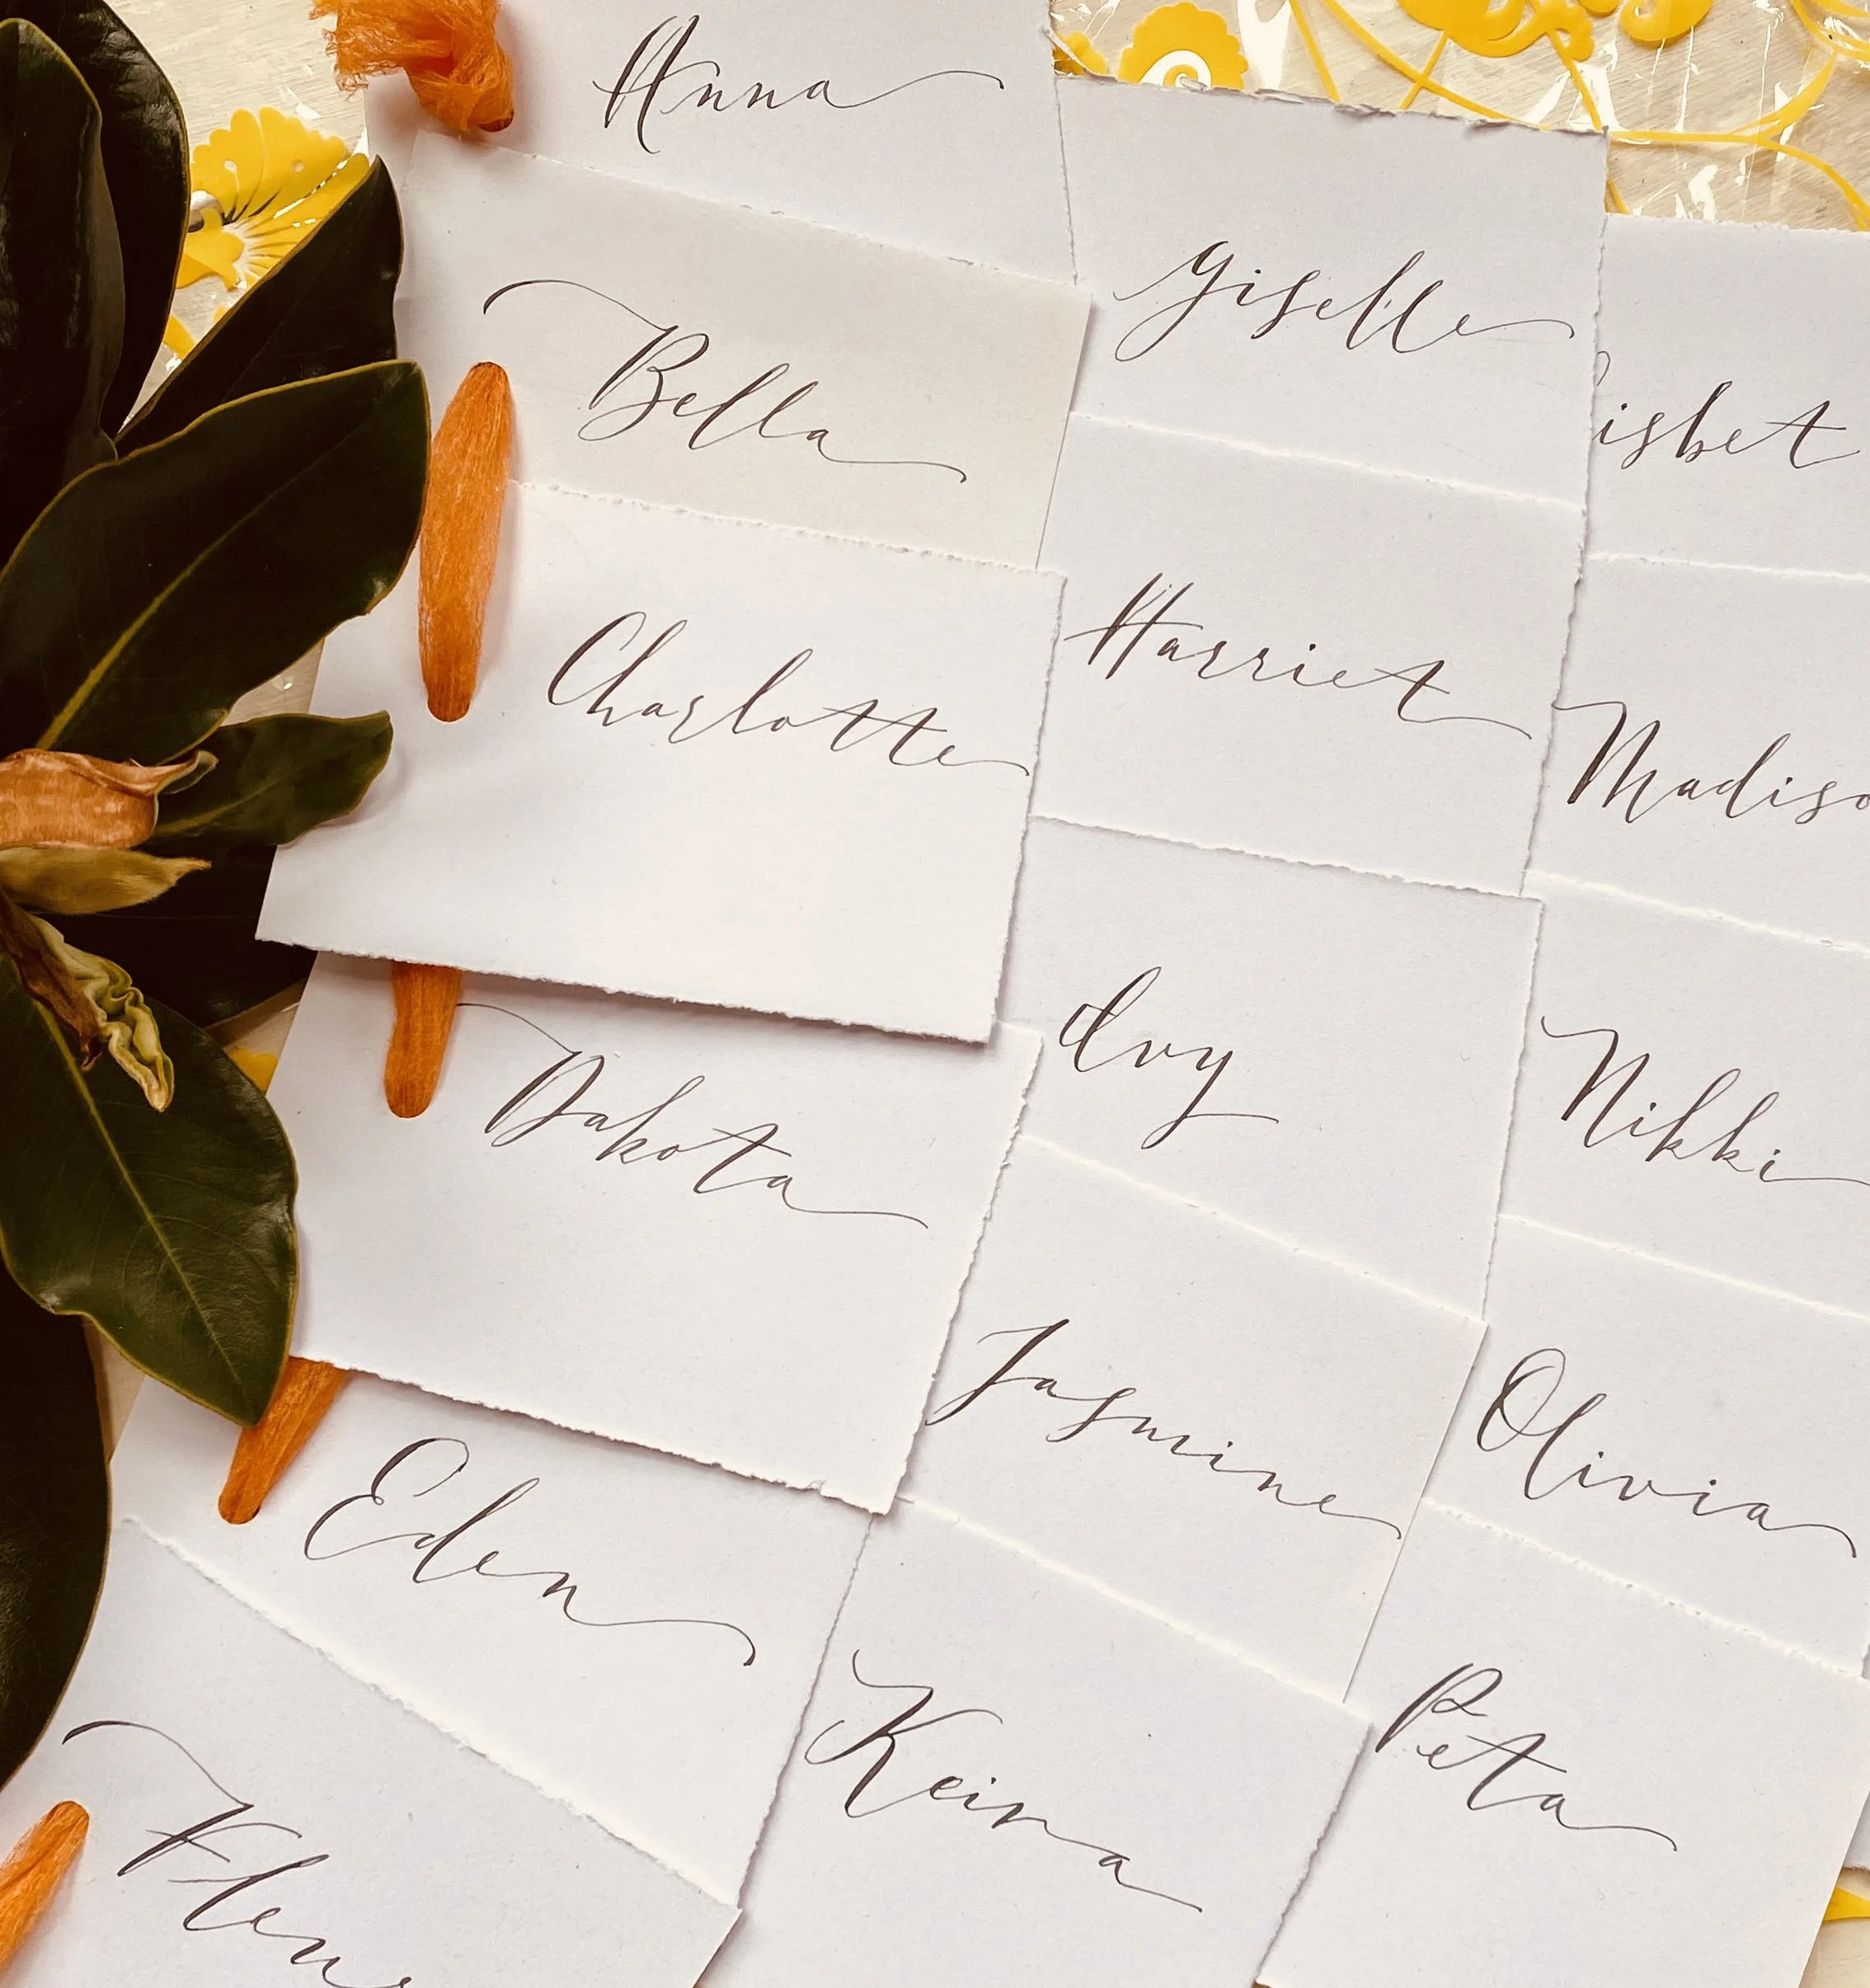 Anna
Bella
Charlotte
Dakota
Eden
Fleur
Giselle
Harriet
Ivy
Jasmine
Keira
isbet
Madiso
Nikki
Olivia
Peta